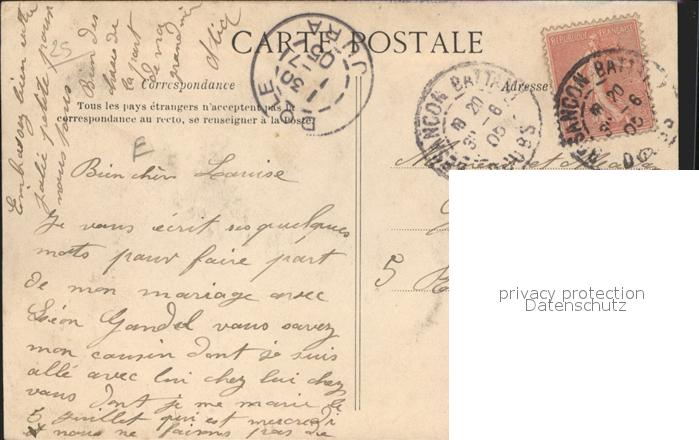 CARTE POSTALE
Correspondance
Adresse
Tous les pays étrangers n'acceptent pas la
correspondance au recto, se renseigner à la Poste.
REPUBLIQUE FRANÇAISE
DOLE
JURA
BESANÇON BATTANT
20
6
05
DOUBS
BESANÇON BATT
20
6
05
DOUBS
25
Bien des
choses de
la part
de ma
grand
Embrassez bien votre
jolie petite pour
nous tous
Bien chère Louise
Je vous écrit ses quelques
mots pour faire part
de mon mariage avec
Léon Gandel vous savez
mon cousin dont je suis
allé avec lui chez lui chez
vous dont je me marie le
5 juillet qui est mercredi
nous ne faisons pas de
5
privacy protection
Datenschutz